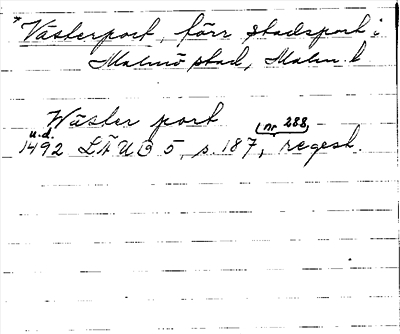 *Västerport, förr stadsport i
Malmö stad, Malm. l
Wäster port
u.d. (nr 288)
1492 LÄUB 5, s. 187, regest.